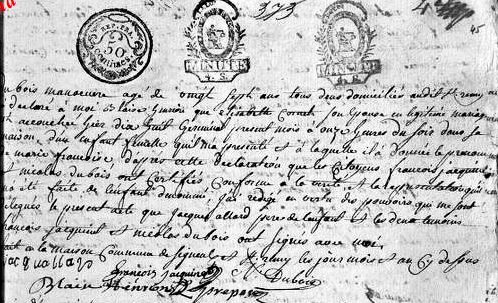 373
45
REP. FRA.
50
centimes
MINUTE
MINUTE
Dubois manoeuvre age de vingt sept ans tous deux domiciliés audit St remy
déclaré à moi que elizabette Cornet son épouse en légitime mariage
est accouchée hier dix huit Germinal present mois à onze heures du soir dans sa
maison d'un enfant femelle qu'il m'a présenté et à laquelle il a donné le prenom
de marie françoise d'après cette déclaration que les Citoyens françois jacquinet
et nicolas dubois ont Certifiés Conforme a la vérité et la représentation qui m'a
été faite de l'enfant dénommé j'ai rédigé en vertu des pouvoirs qui me sont
délégués le present acte que jacque allard pere de l'enfant et les deux temoins
françois jacquinet et nicolas dubois ont signés avec moi
fait a la maison Commune de et St Remy les jour mois et an Cy dessus
jacquallar
francois jacquinet N. Dubois
Blaise